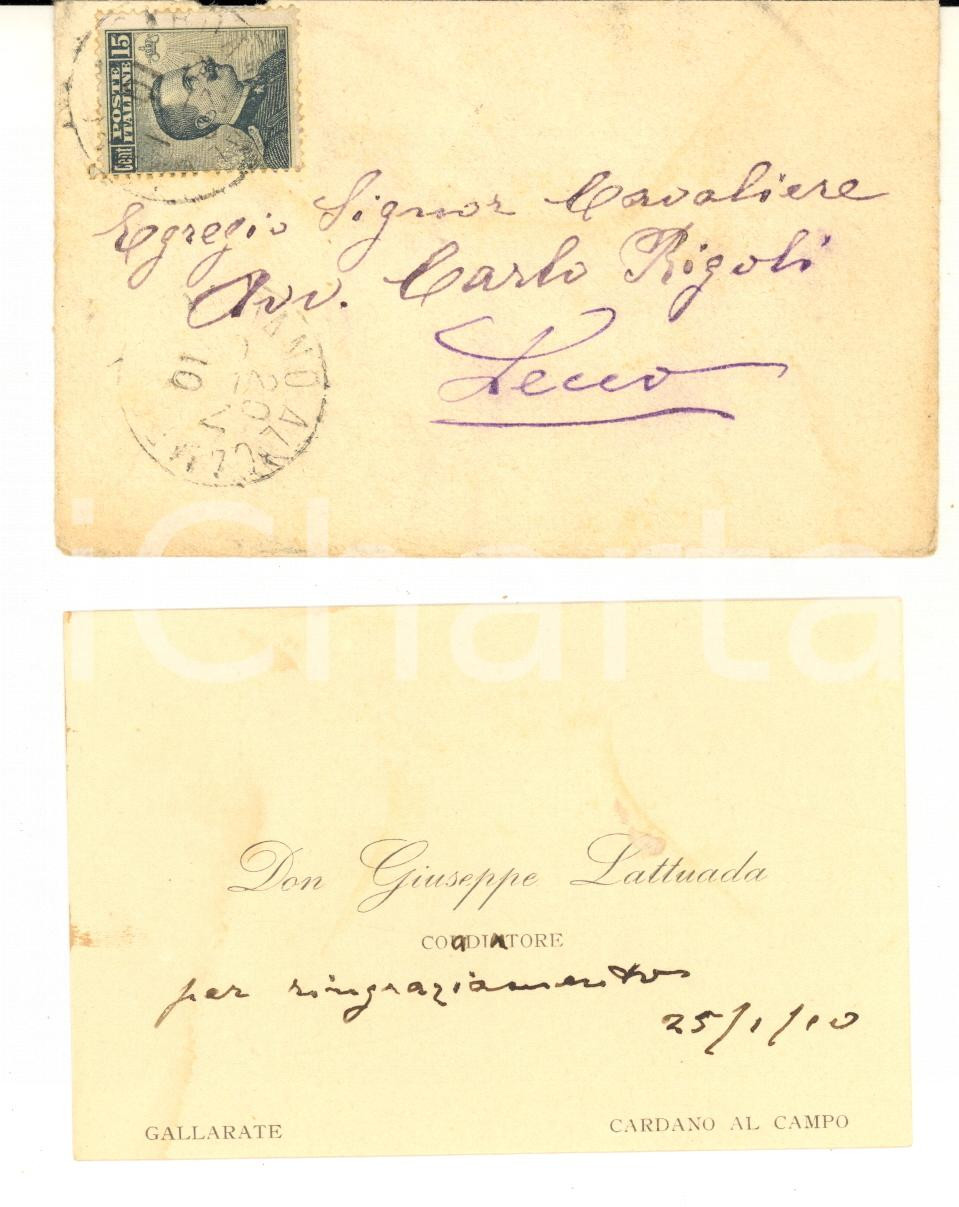 Cent 15
POSTE ITALIANE
Egregio Signor Cavaliere
Avv. Carlo Rigoli
Lecco
iCharta
Don Giuseppe Lattuada
per ringraziamento
25/1/10
GALLARATE CARDANO AL CAMPO